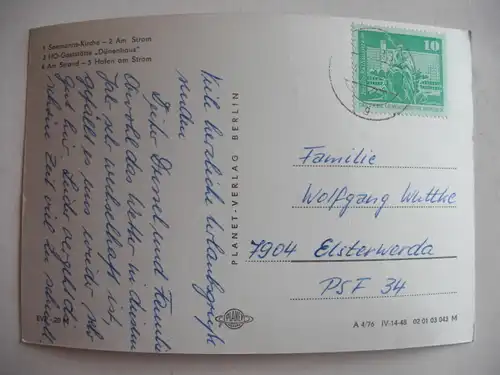 1 Seemanns-Kirche - 2 Am Strom
3 HO-Gaststätte „Dünenhaus"
4 Am Strand - 5 Hafen am Strom
Viele herzliche Urlaubsgrüße
senden
Obwohl das Wetter in diesem
Jahr sehr wechselhaft ist,
gefällt es uns wieder sehr
gut hier. Leider vergeht die
schöne Zeit viel zu schnell.
PLANET-VERLAG BERLIN
PLANET
10
Familie
Wolfgang Wuttke
7904 Elsterwerda
PSF 34
A 4/76 IV-14-48 02 01 03 043 M